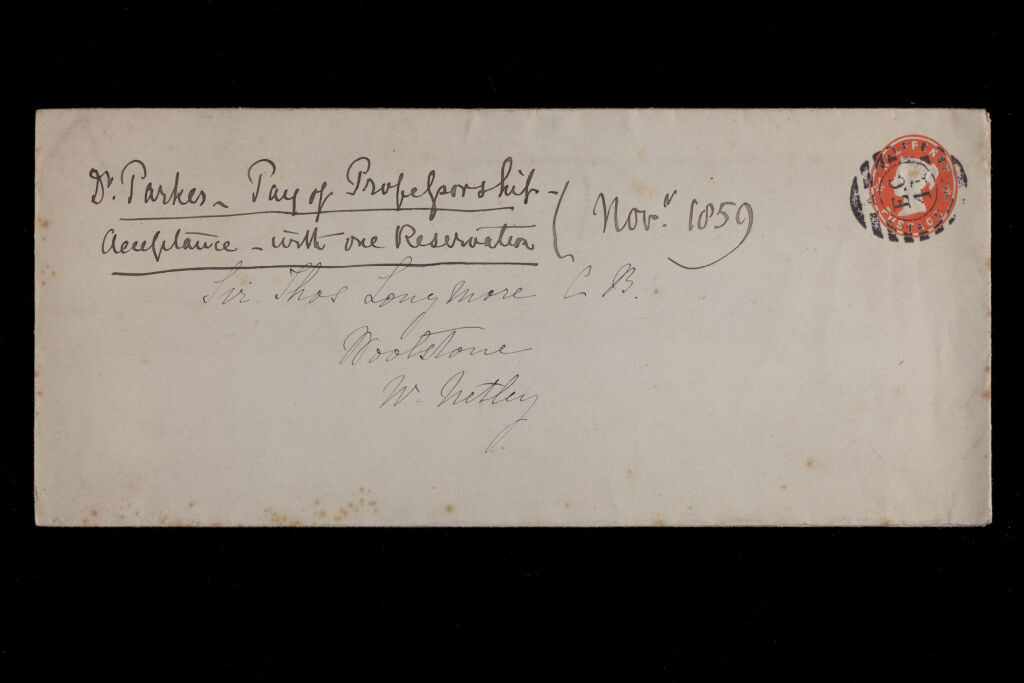 Dr. Parkes - Pay of Professorship -
Acceptance - with one Reservation
(Novr. 1859
Sir Thos Longmore C B.
Woolstone
Nr. Netley
HALFPENNY
POSTAGE
EC